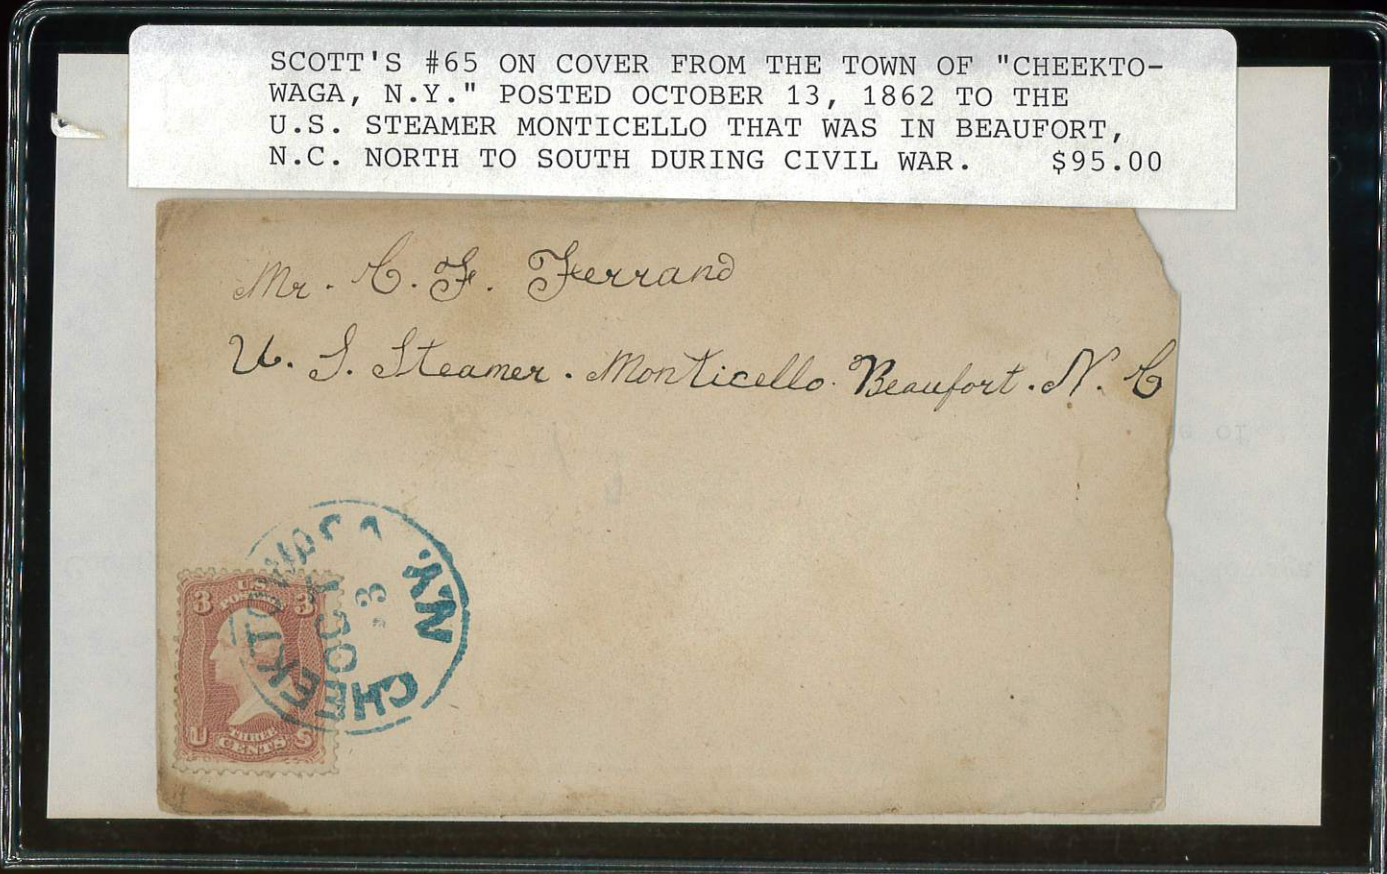 SCOTT'S #65 ON COVER FROM THE TOWN OF "CHEEKTO-
WAGA, N.Y." POSTED OCTOBER 13, 1862 TO THE
U.S. STEAMER MONTICELLO THAT WAS IN BEAUFORT,
N.C. NORTH TO SOUTH DURING CIVIL WAR. $95.00
Mr. C. F. Ferrand
U. S. Steamer. Monticello. Beaufort. N. C
CHEEKTOWAGA N.Y.
OCT
3 U.S. POSTAGE 3
U THREE CENTS S